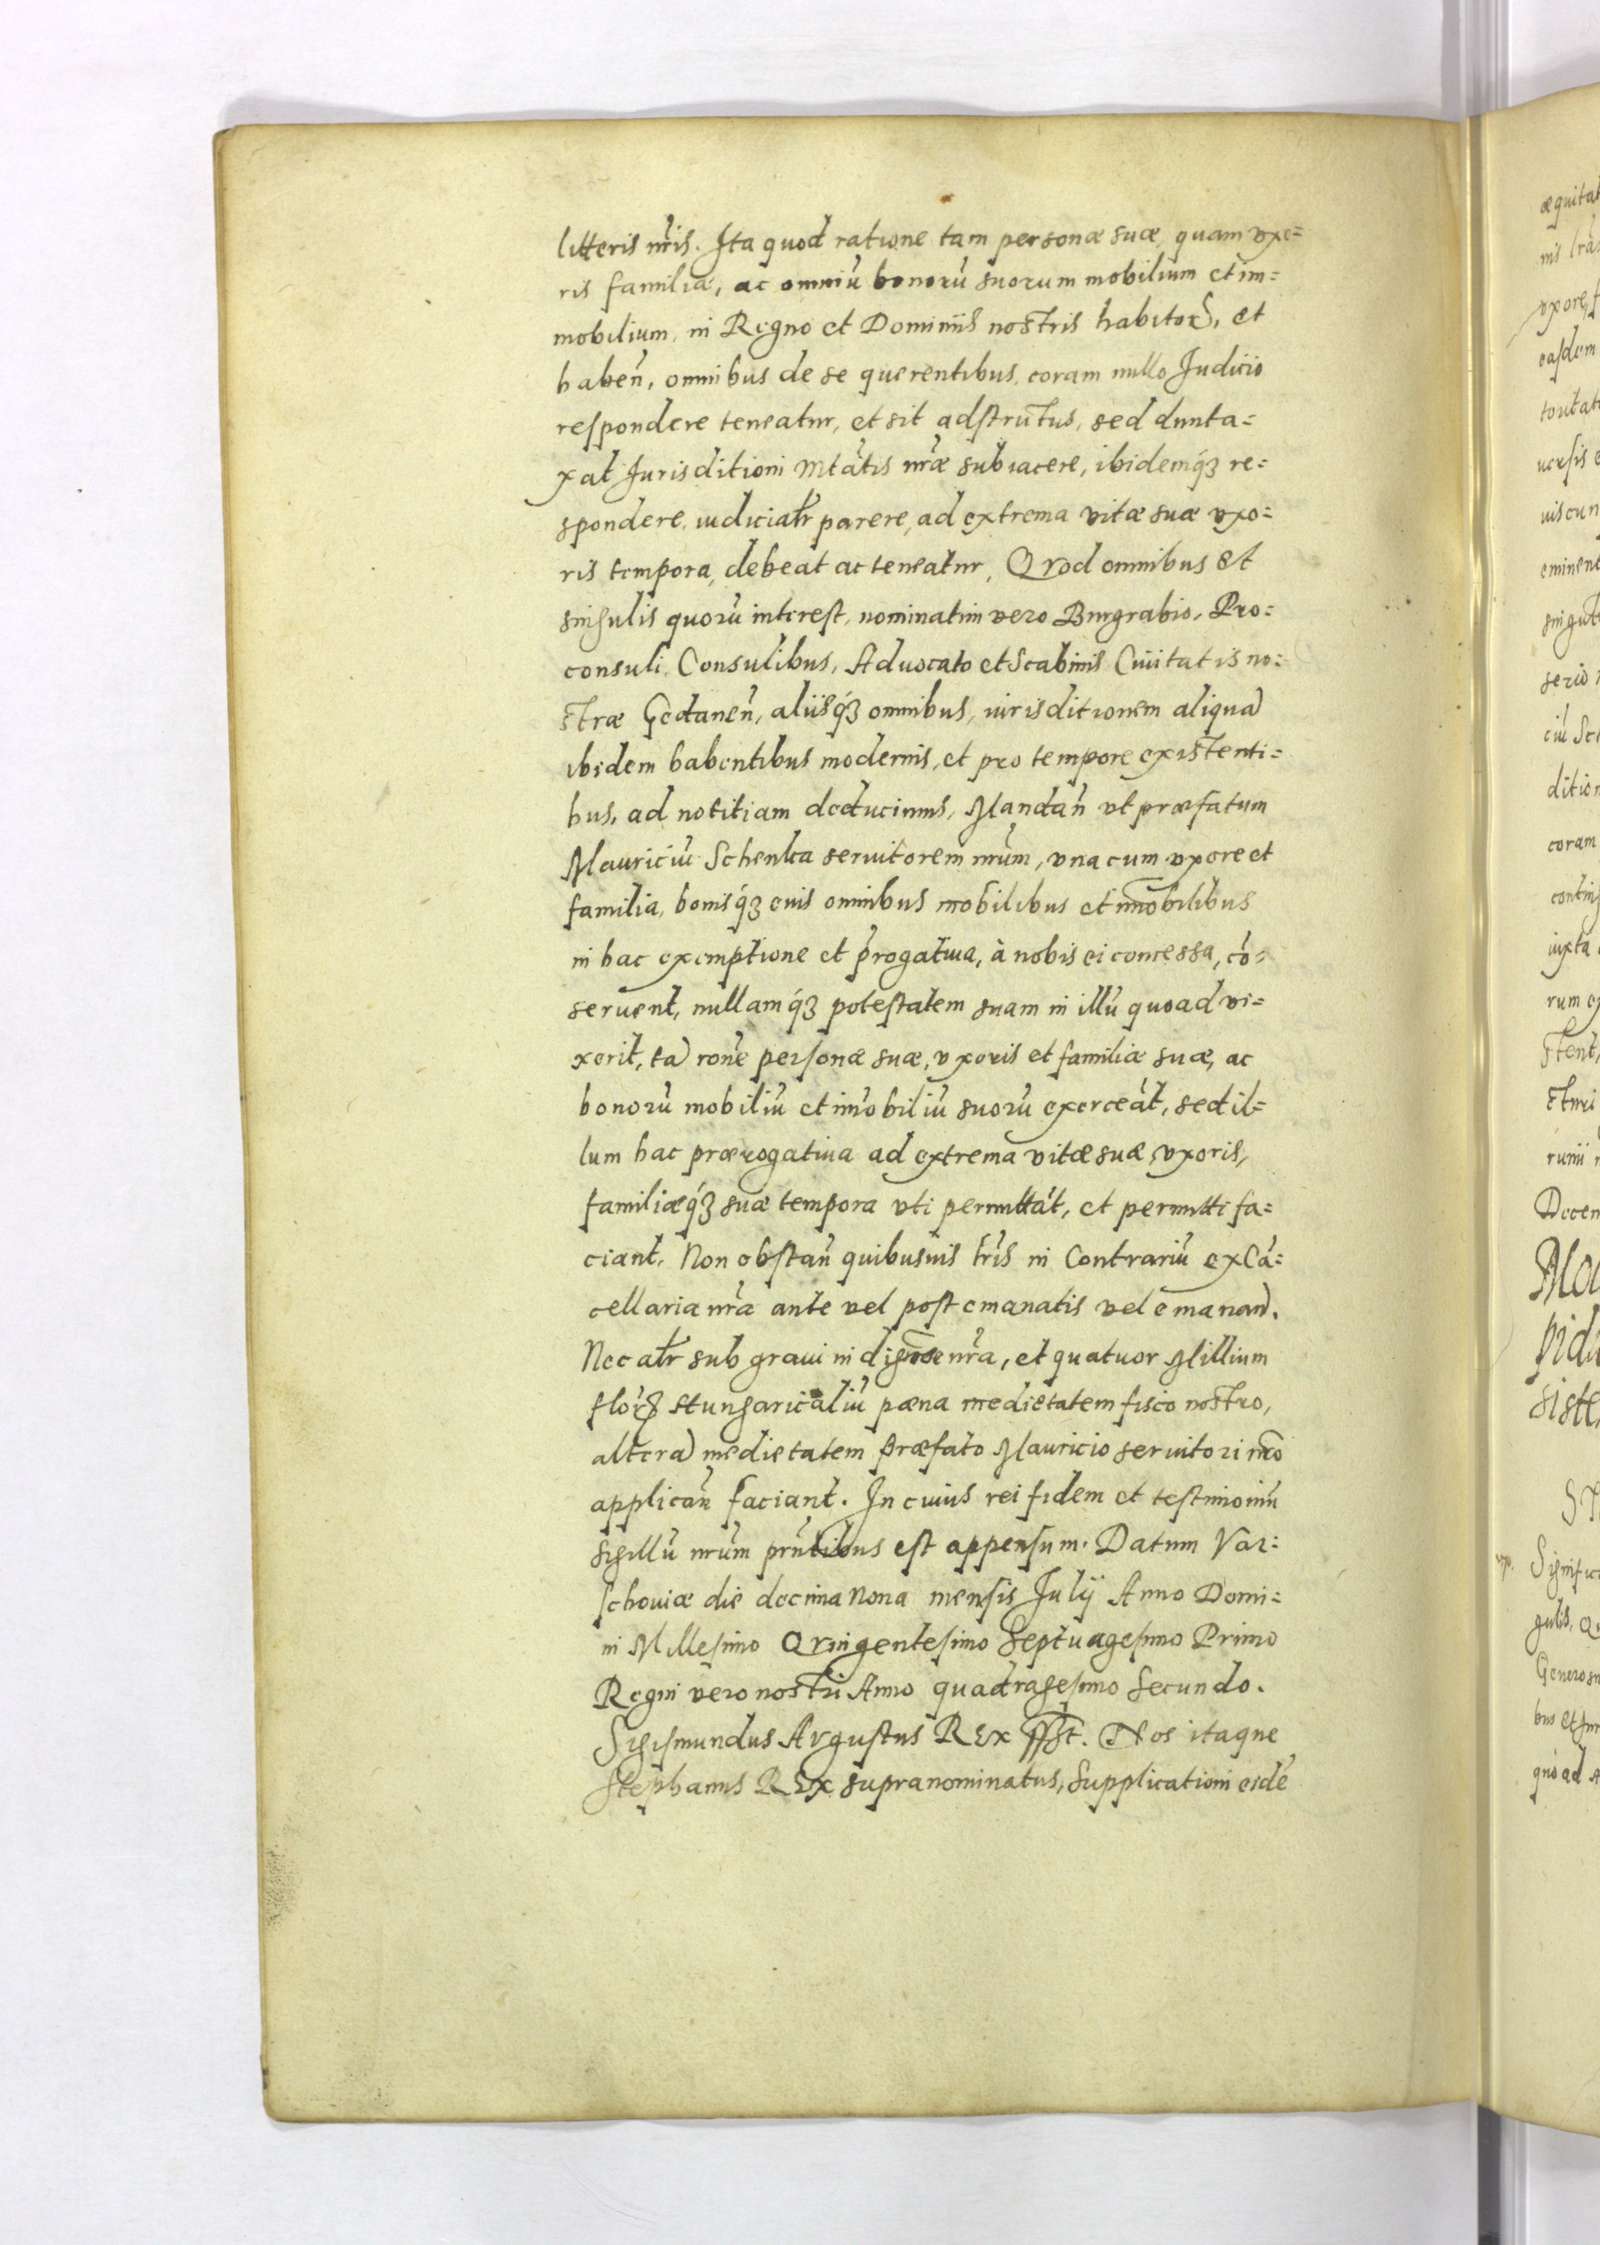 litteris nr̃is. Ita quod ratione tam personæ suæ, quam vxo=
ris familiæ, ac omniũ bonorũ suorum mobilium et im=
mobilium, in Regno et Dominijs nostris habitor̃, et
haben̄, omnibus de se querentibus, coram nullo Judicio
respondere teneatur, et sit adstrictus, sed dunta=
xat Jurisditioni Mtãtis nr̃æ subiacere, ibidemq́ꝫ re=
spondere, iudicialr̃ parere, ad extrema vitæ suæ vxo=
ris tempora, debeat ac teneatur, Qvod omnibus et
singulis quorũ interest, nominatim vero Burgrabio, Pro=
consuli, Consulibus, Aduocato et Scabinis Ciuitatis no=
stræ Gedanen̄, alijsq́ꝫ omnibus, iurisditionem aliquã
ibidem habentibus modernis, et pro tempore existenti=
bus, ad notitiam deducimus, Mandan̄ vt præfatum
Mauriciũ Schenka seruitorem nr̃um, vna cum vxore et
familia, bonisq́ꝫ eius omnibus mobilibus et im̃obilibus
in hac exemptione et p̃rogatiua, à nobis ei concessa, cõ=
seruent, nullamq́ꝫ potestatem suam in illũ quoad vi=
xerit, tã rõne personæ suæ, vxoris et familiæ suæ, ac
bonorũ mobiliũ et im̃obiliũ suorũ exerceãt, sed il=
lum hac prærogatiua ad extrema vitæ suæ, vxoris,
familiæq́ꝫ suæ tempora vti permittãt, et permitti fa=
ciant. Non obstan̄ quibusuis lr̃is in Contrariũ ex Cã=
cellaria nr̃a ante vel post emanatis vel emanan̄.
Nec alr̃ sub graui indig̃õe nr̃a, et quatuor Millium
flor̃ꝫ Hungaricaliũ pæna medietatem fisco nostro,
alterã medietatem præfato Mauricio seruitori nr̃o
applican̄ faciant. In cuius rei fidem et testimoniũ
Sigillũ nr̃um pr̃ntibus est appensum. Datum Var=
schouiæ die decima nona mensis Julij Anno Domi=
ni Millesimo Qvingentesimo Septuagesimo Primo
Regni vero nostri Anno quadragesimo Secundo.
Sigismundus Avgustus Rex sst. Nos itaque
Stephanus Rex supranominatus, Supplicationi eidẽ